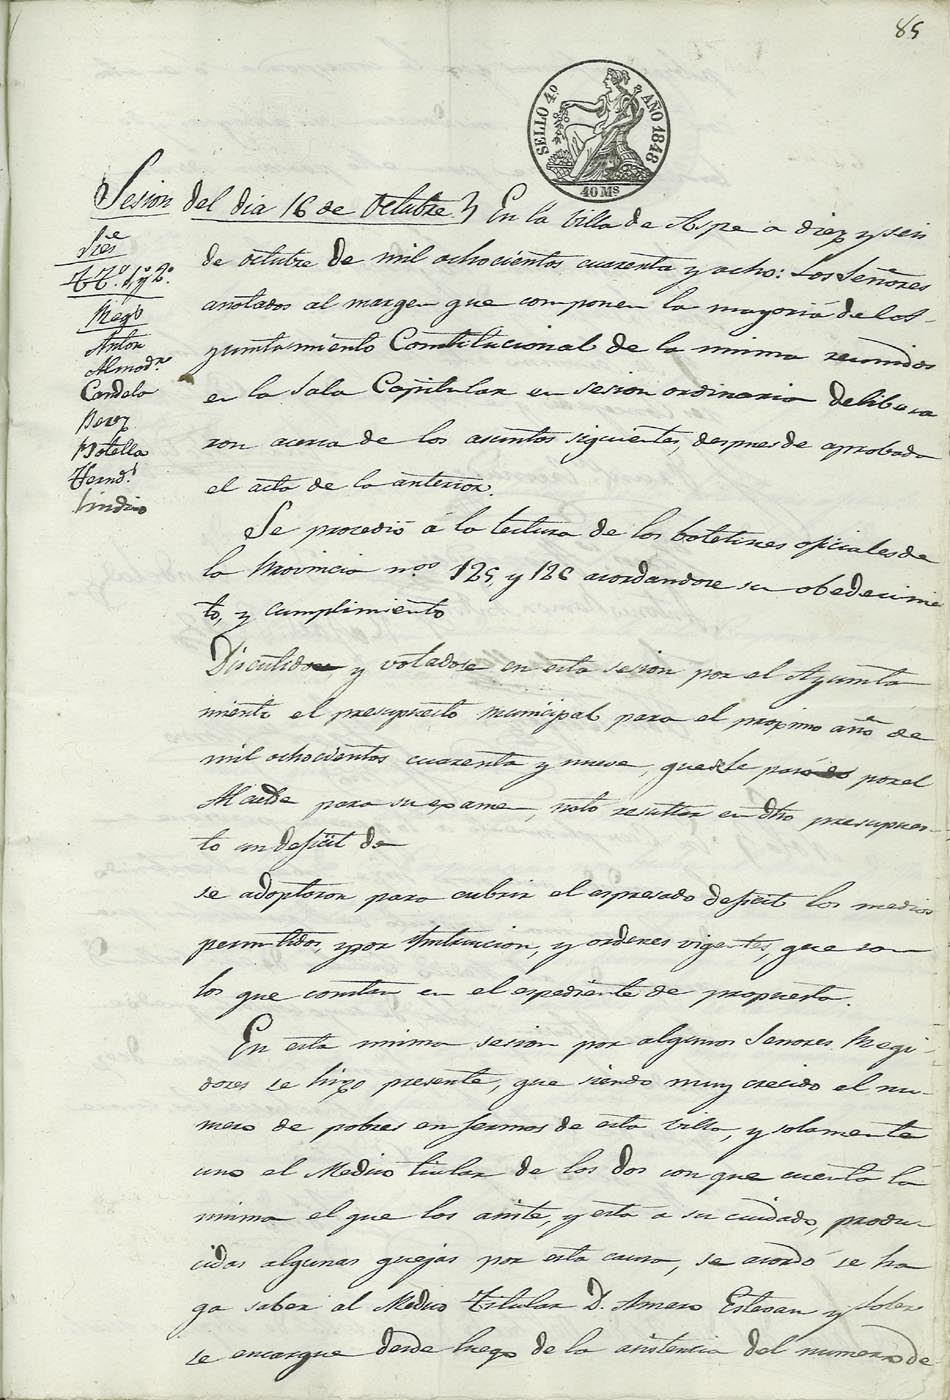 85
SELLO 4º AÑO 1848
40 Ms
Sesion del dia 16 de Octubre.
Sres
TTes. 1º y 2º
Regs
Anton
Almodr
Candela
Perez
Botella
Fernd.
En la Villa de Aspe a diez y seis
de octubre de mil ochocientos cuarenta y ocho: Los Señores
anotados al margen que componen la mayoria del A-
yuntamiento Constitucional de la misma reunidos
en la Sala Capitular en sesion ordinaria delibera
ron acerca de los asuntos siguientes, despues de aprobada
el acta de la anterior.
Se procedió á la lectura de los boletines oficiales de
la Provincia nos 125, y 126 acordandose su obedecimie
to, y cumplimiento
Discutido y votadose en esta sesion por el Ayunta
miento el presupuesto municipal para el proximo año de
mil ochocientos cuarenta y nueve, que le pasó por el
Alcalde para su examen, y resultar en dho presupues-
to un deficit de
se adoptaron para cubrir el espresado deficit los medios
permitidos, y por Instruccion, y ordenes vigentes, que son
los que constan en el espediente de propuesta.
En esta misma sesion por algunos Señores Regi-
dores se hizo presente, que siendo muy crecido el nu-
mero de pobres enfermos de esta villa, y solamente
uno el Medico titular de los dos con que cuenta la
misma el que los asiste, y está a su cuidado, produ-
cidas algunas quejas por esta causa, se acordó se ha
ga saber al Medico titular D. Amaro Estevan y Soler
se encargue desde luego de la asistencia del numero de